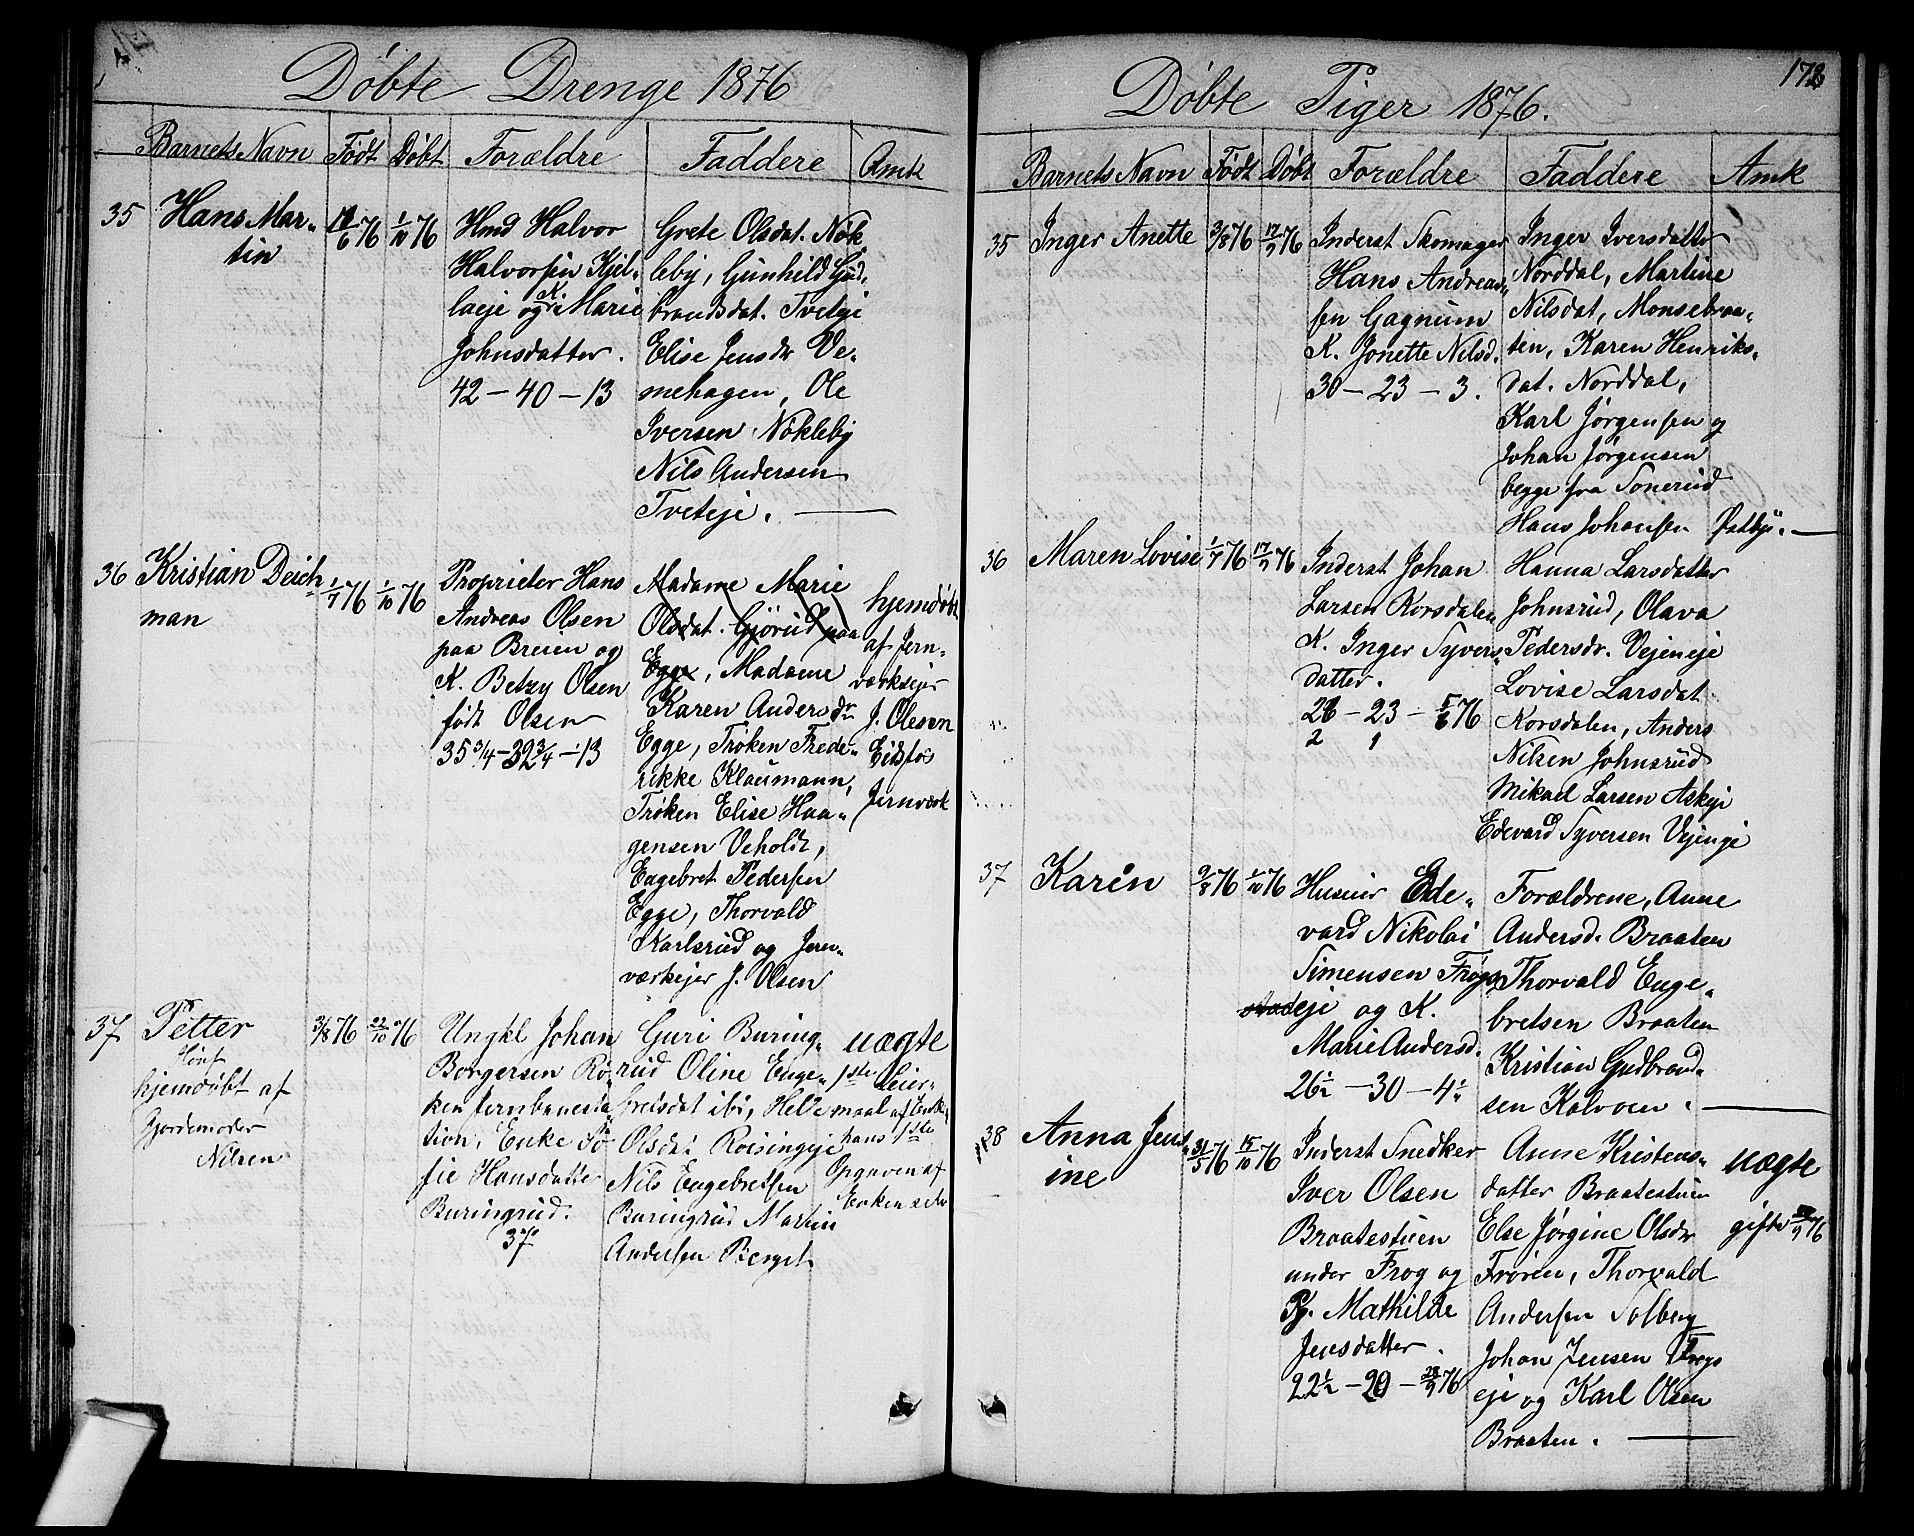 Döbte Drenge 1876
Barnets Navn Født Døbt Forældre Faddere Amk
35 Hans Mar-
tin
6 76 1/10 76
Hmd Halvor
Halvorsen Kjel-
laeje og K. Marie
Johnsdatter.
42 – 40 – 13
Grete Olsdat. Nök
leby, Gunhild Gud-
brandsdat. Tveteje
Elise Jensdr Ve-
mehagen, Ole
Iversen Nökleby
Nils Andersen
Tveteje. —
36 Kristian Deich-
man
1/7 76 1/10 76
Proprieter Hans
Andreas Olsen
paa Breien og
K. Betzy Olsen
født Olsen
35 3/4 – 32 3/4 – 13
Madame Marie
Olsdat. Gjörud paa
Egge, Madame
Karen Andersdr
Egge, Frøken Frede-
rikke Klaumann,
Frøken Elise Haa-
gensen Veholdt,
Engebret Pedersen
Egge, Thorvald
Karlsrud og Jern-
værkejer J. Olsen
hjemdøbt
af Jern-
værksejer
J. Olesen
Eidsfos
Jernværk
37 Petter
hjemdøbt af
Gjordemoder
Nilsen
3/8 76 22/10 76
Ungkl Johan
Borgersen Rö-
ken Jernbanesta
tion, Enke So
fie Hansdatter
Buringrud.
37
Guri Buring-
rud Oline Enge-
bretsdat ibi, Helve
Olsdat Roisingeje
Nils Engebretsen
Buringrud Martin
Andersen Berget
uægte
1ste Leier-
maal af Enke,
hans 1ste
Opgaven af
Enken selv
Döbte Piger 1876.
178
Barnets Navn Födt Döbt Forældre Faddere Amk
35 Inger Anette 3/8 76 17/9 76
Inderst Skomager
Hans Andreas-
sen Gagnum
K. Jonette Nilsd.
30 – 23 – 3.
Inger Iversdatter
Norddal, Martine
Nilsdat, Monsebraa-
ten, Karen Henriks-
dat. Norddal,
Karl Jørgensen og
Johan Jørgensen
begge fra Tonerud
Hans Johansen Østbye. —
36 Maren Lovise 1/7 76 17/9 76
Inderst Johan
Larsen Korsdalen
K. Inger Syvers-
datter.
26 – 23 – 5/6 76
2 1
Hanna Larsdatter
Johnsrud, Olava
Pedersdr. Vejeneje
Lovise Larsdat
Korsdalen, Anders
Nilsen Johnsrud
Mikael Larsen Askeje
Edevard Syversen Vejenge
37 Karen 9/8 76 1/10 76
Huseier Ede-
vard Nikolai
Simensen Frog-
stadeje og K.
Marie Andersd.
26 1/2 – 30 – 4 1/2
Forældrene, Anne
Andersd. Braaten
Thorvald Enge-
bretsen Braaten
Kristian Gudbrand-
sen Kalvoen. —
38 Anna Jens-
ine
31/5 76 15/10 76
Inderst Snedker
Iver Olsen
Braatestuen
under Frog og
Pg. Mathilde
Jensdatter.
22 1/2 – 20 – 28/9 76
Anne Kristens-
datter Braatestuen
Else Jørgine Olsdr
Frøren, Thorvald
Andersen Solberg
Johan Jensen Frogs
eje og Karl Olsen
Braaten. —
uægte
gifte 28/9 76